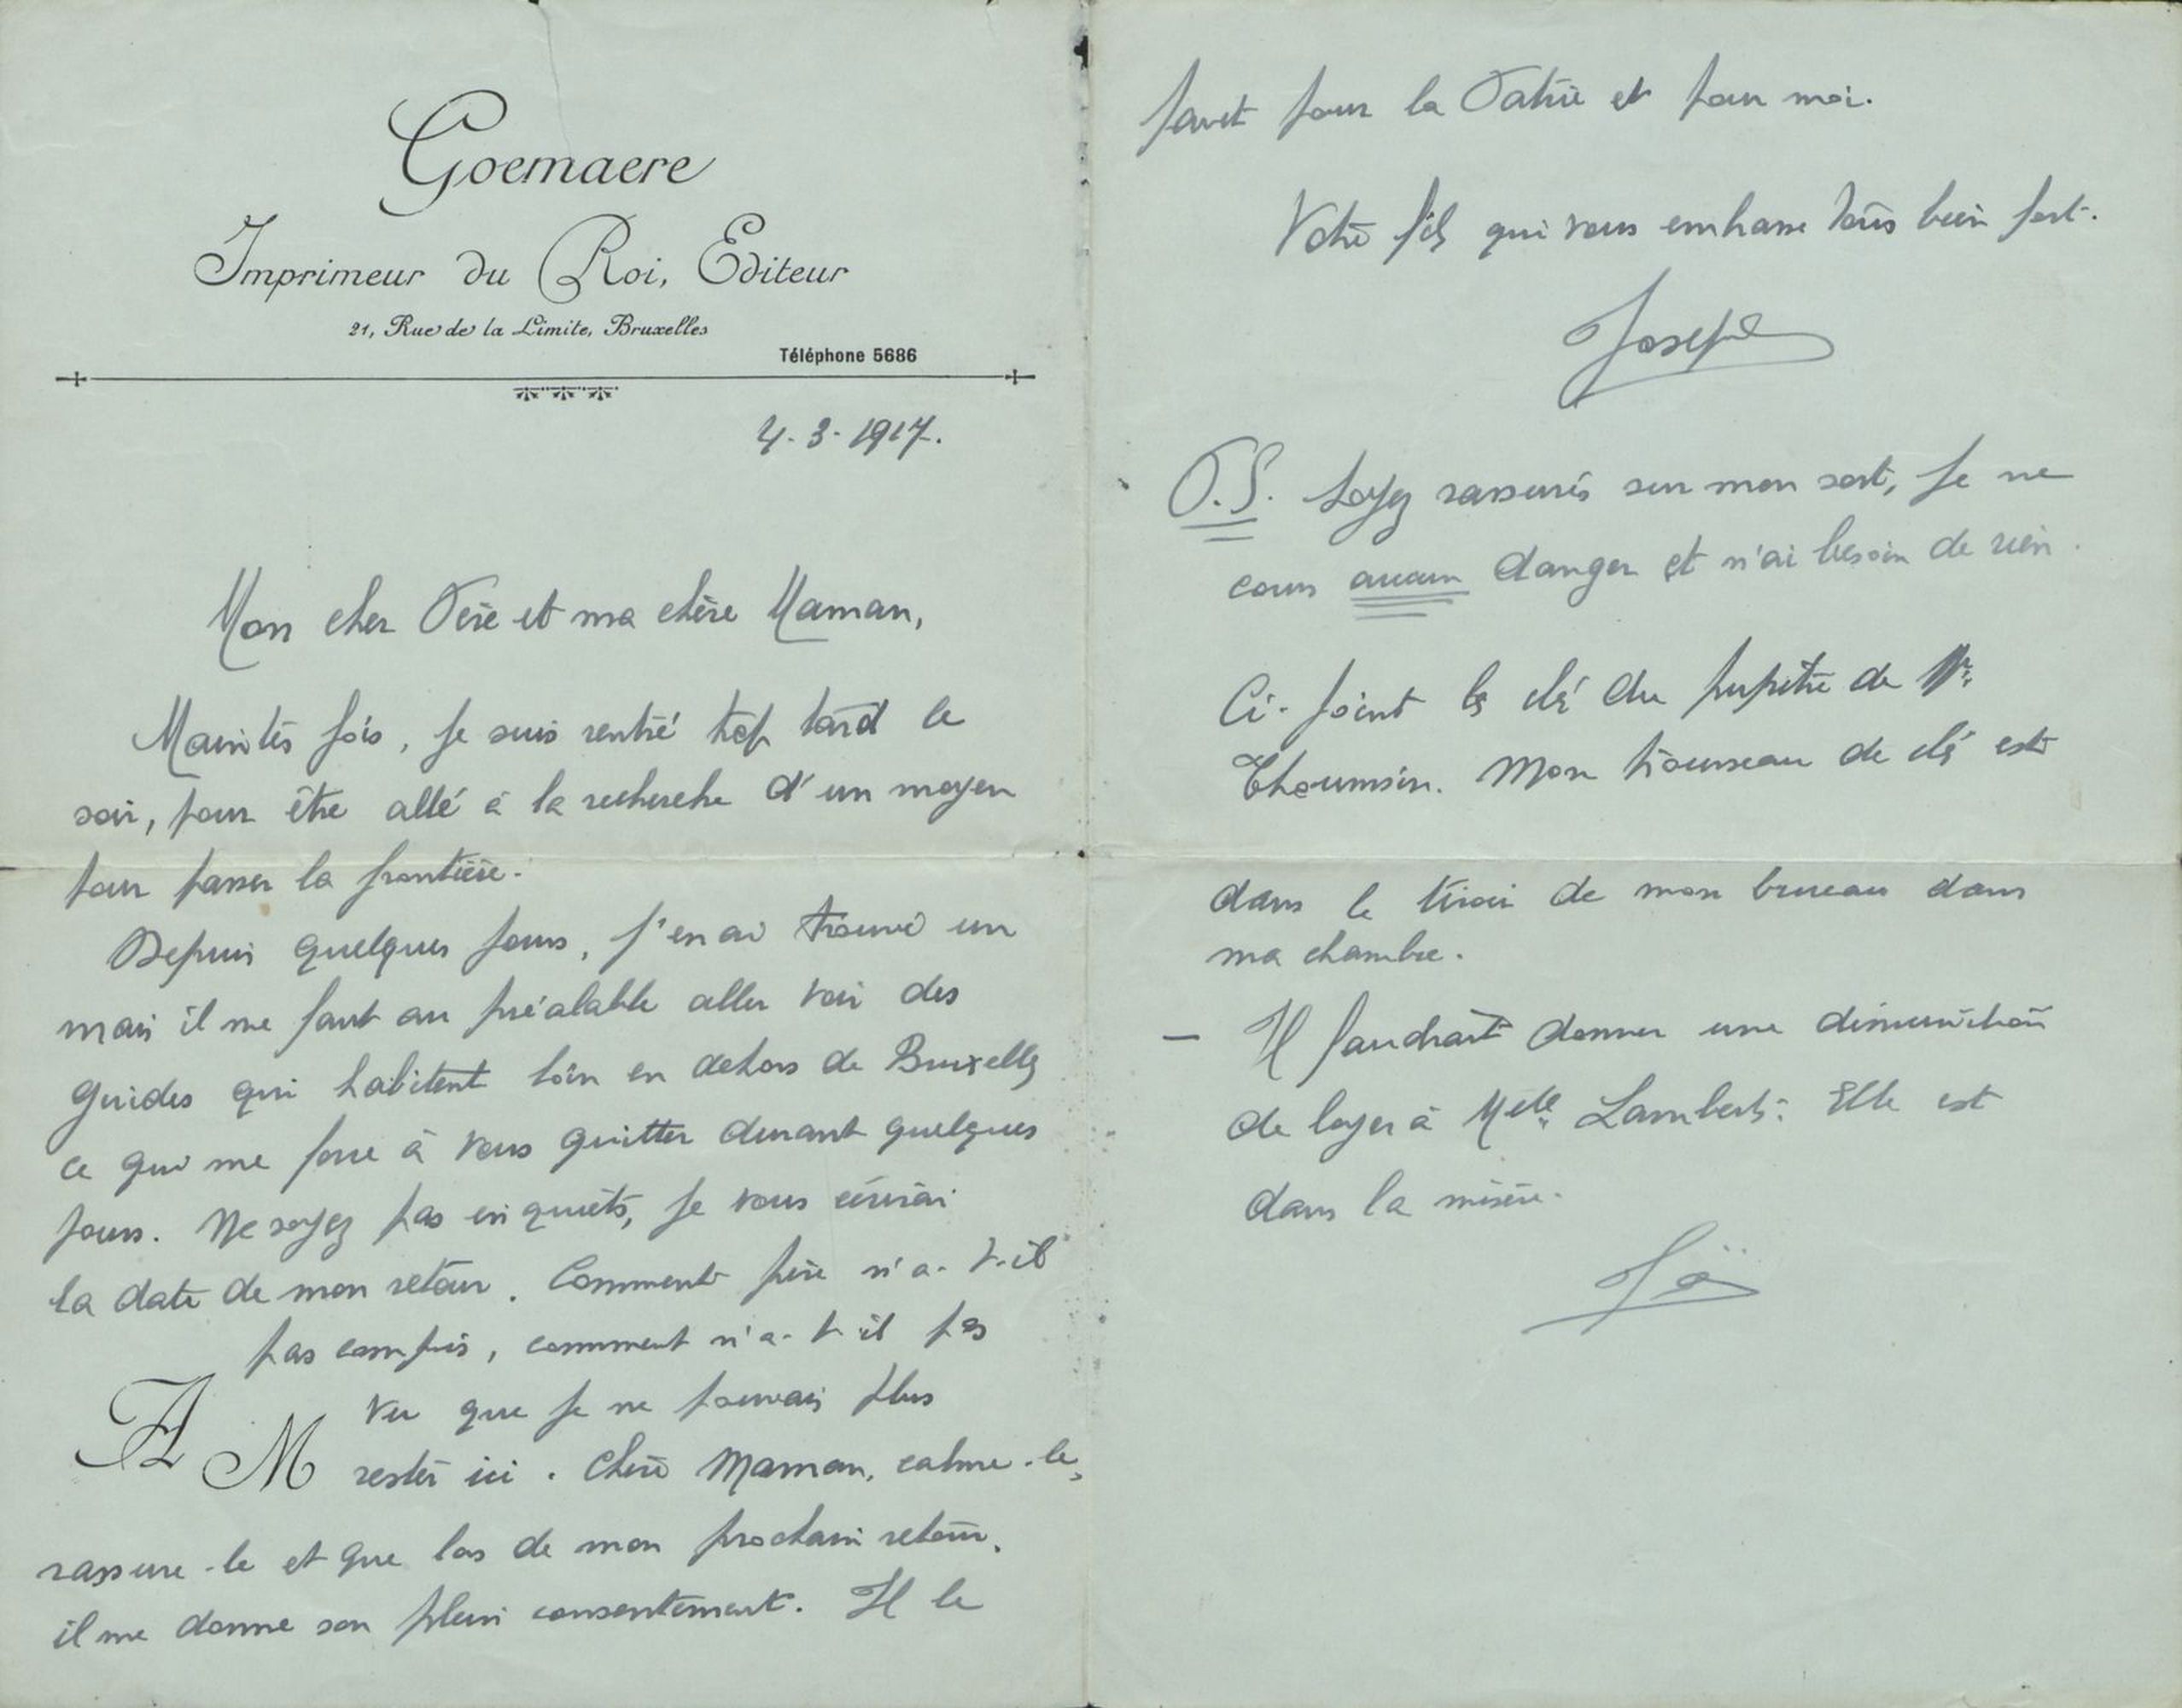 Goemaere
Imprimeur du Roi, Editeur
21, Rue de la Limite, Bruxelles
Téléphone 5686
4-3-1917.
Mon cher Père et ma chère Maman,
Maintes fois, je suis rentré trop tard le
soir, pour être allé à la recherche d'un moyen
pour passer la frontière.
Depuis quelques jours, j'en ai trouvé un
mais il me faut au préalable aller voir des
guides qui habitent loin en dehors de Bruxelles
ce qui me force à vous quitter durant quelques
jours. Ne soyez pas inquiets, je vous écrirai
la date de mon retour. Comment père n'a-t-il
pas compris, comment n'a-t-il pas
vu que je ne pouvais plus
A M
rester ici. Chère Maman, calme-le,
rassure-le et que lors de mon prochain retour,
il me donne son plein consentement. Il le
faut pour la Patrie et pour moi.
Votre fils qui vous embrasse tous bien fort.
Joseph
P.S. Soyez rassurés sur mon sort, je ne
cours aucun danger et n'ai besoin de rien.
Ci-joint la clé du pupitre de Mr.
Thoumsin. Mon trousseau de clé est
dans le tiroir de mon bureau dans
ma chambre.
— Il faudrait donner une diminution
de loyer à Melle. Lambert. Elle est
dans la misère.